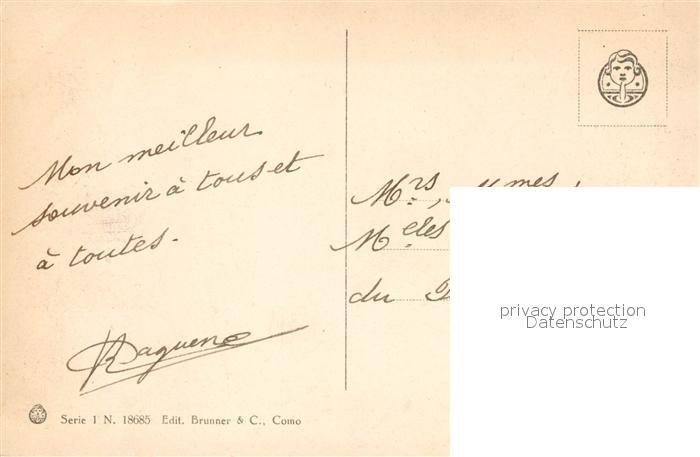 Mon meilleur
souvenir à tous et
à toutes.
Raguen
Serie 1 N. 18685 Edit. Brunner & C., Como
Mrs, Mmes
Melles
du
privacy protection
Datenschutz